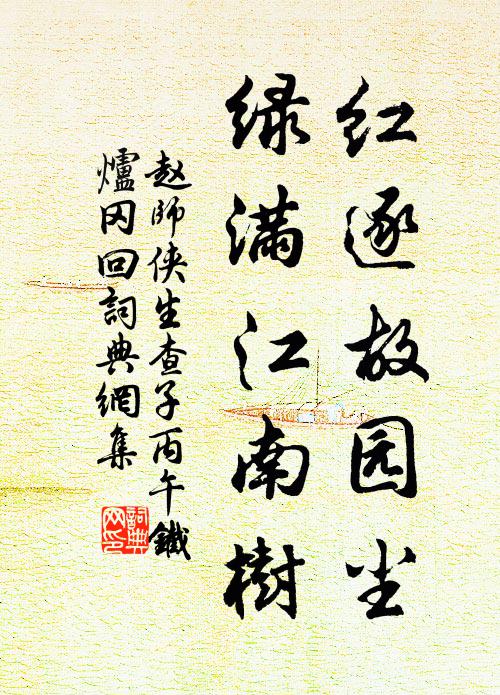 红逐故园尘
绿满江南樹
赵師侠生查子丙午鐵
爐冈回詞典網集
詞典网印